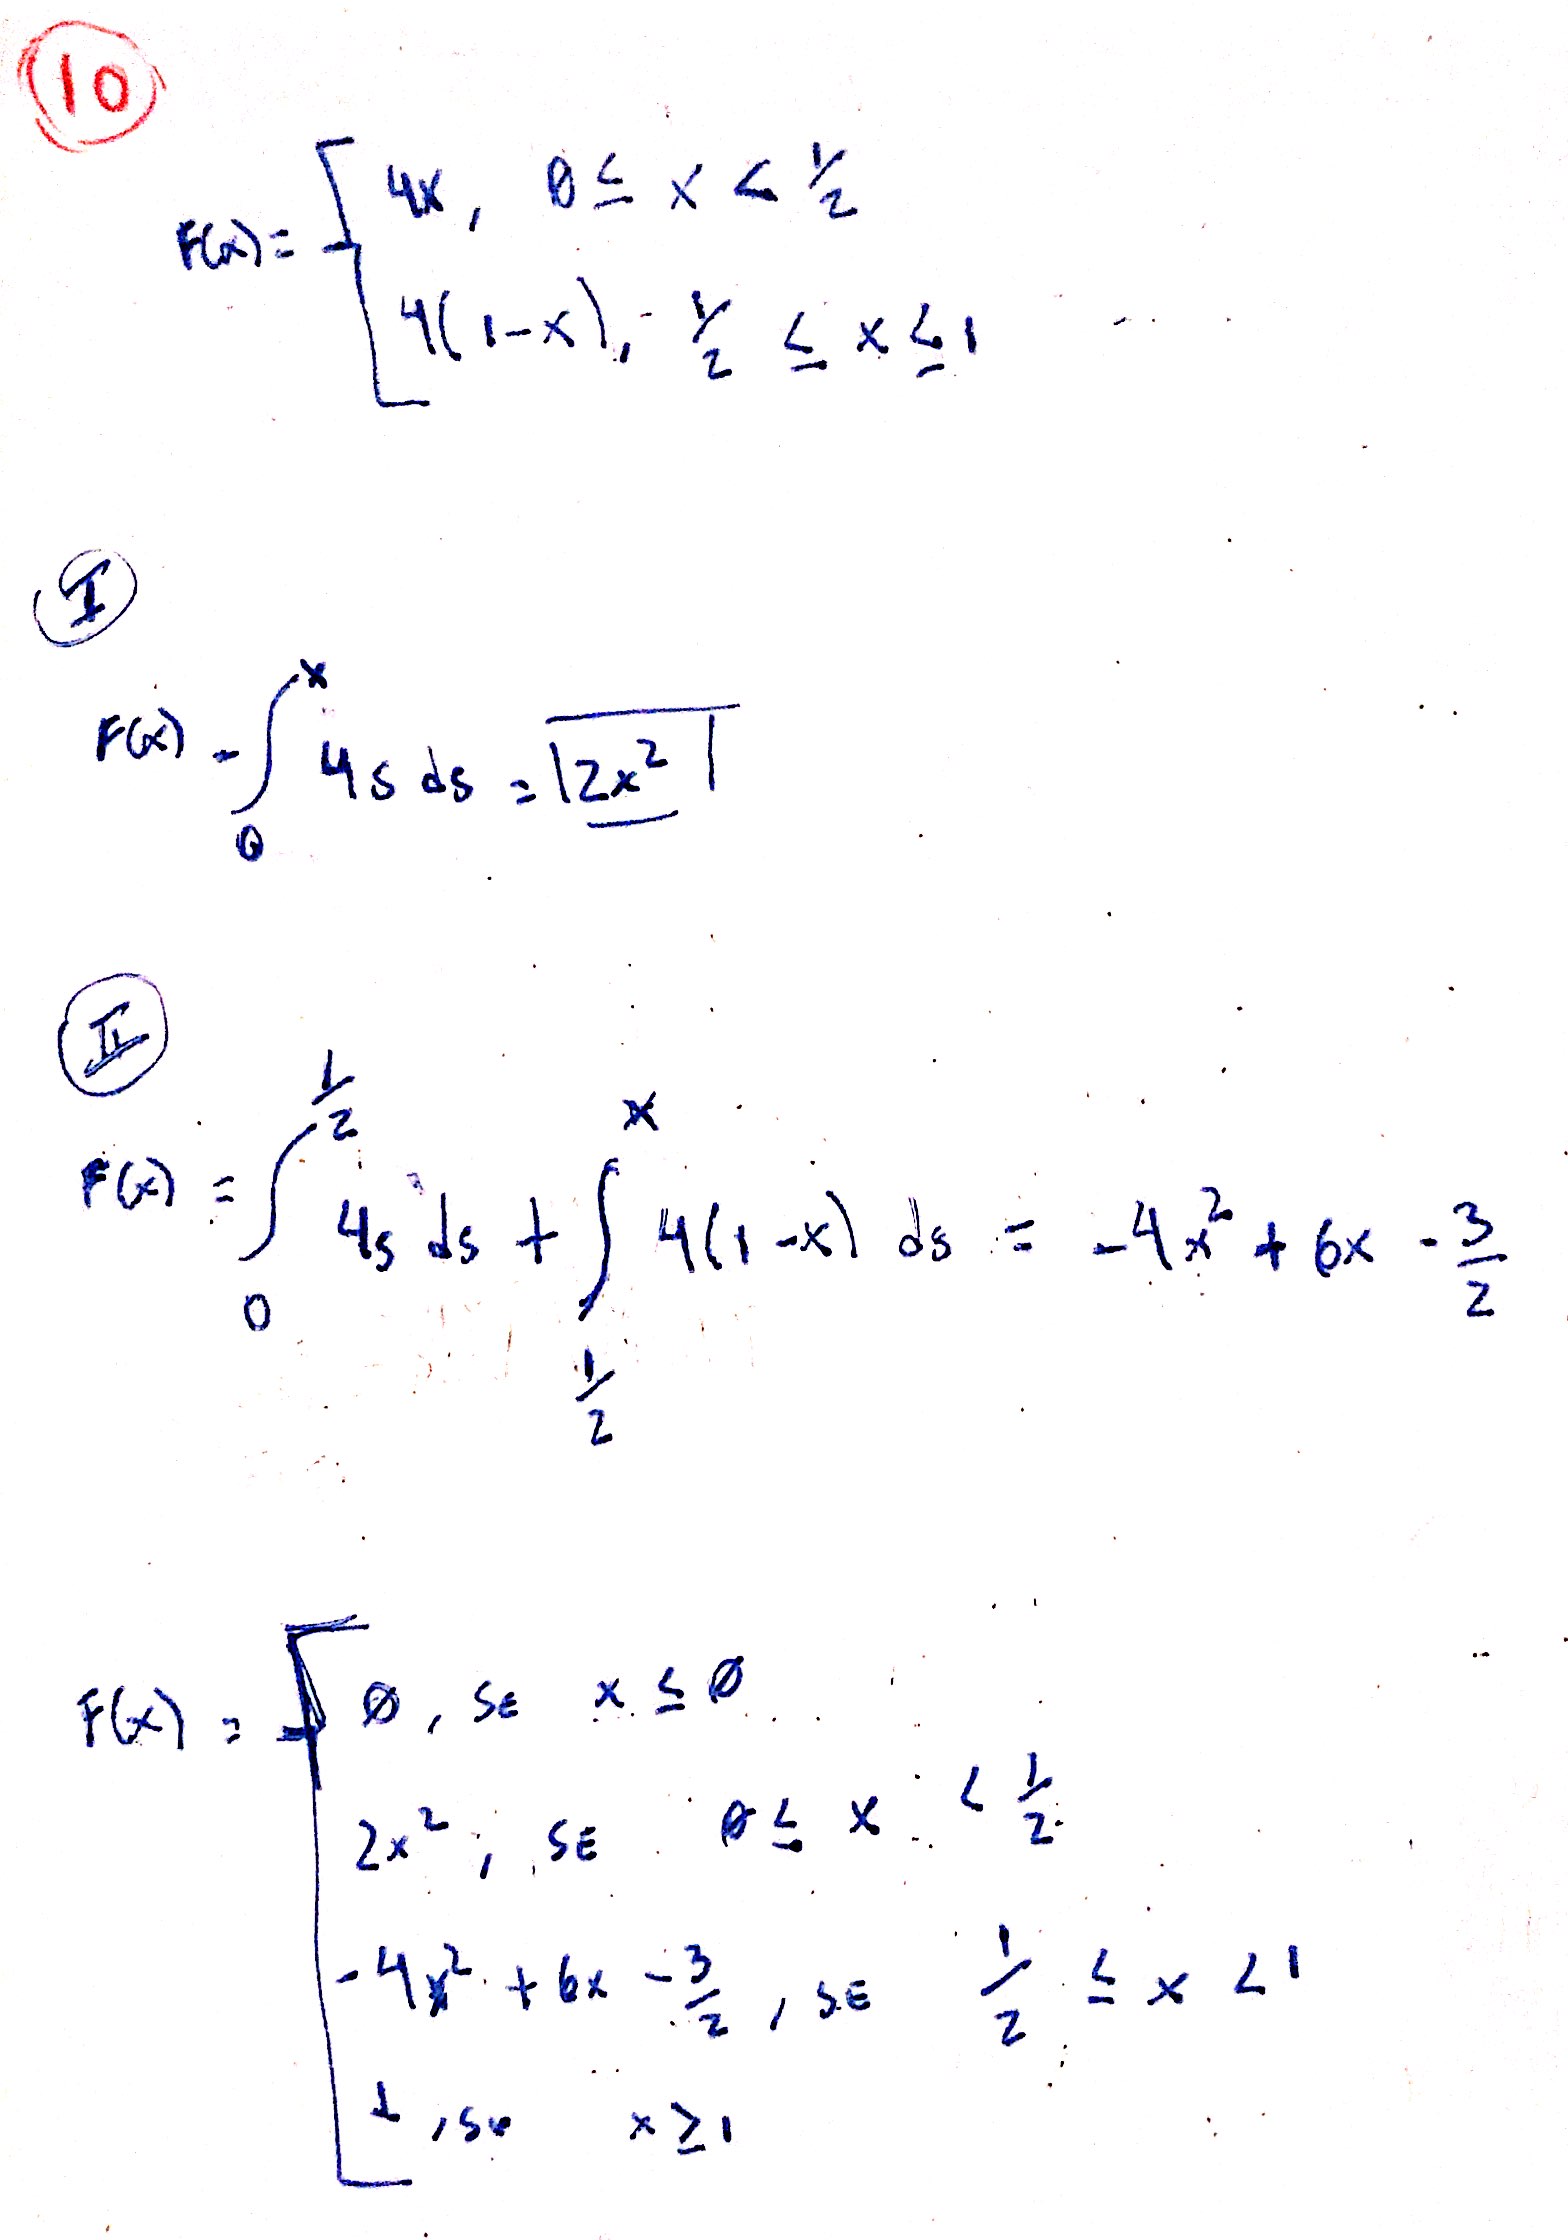 10
F(x) = 4x, 0 ≤ x < 1/2
4(1-x), 1/2 ≤ x ≤ 1
I
F(x) = ∫₀ˣ 4s ds = 2x²
II
F(x) = ∫₀^(1/2) 4s ds + ∫_(1/2)^x 4(1-x) ds = -4x² + 6x - 3/2
F(x) = 0, SE x ≤ 0
2x², SE 0 ≤ x < 1/2
-4x² + 6x - 3/2, SE 1/2 ≤ x < 1
1, SE x ≥ 1